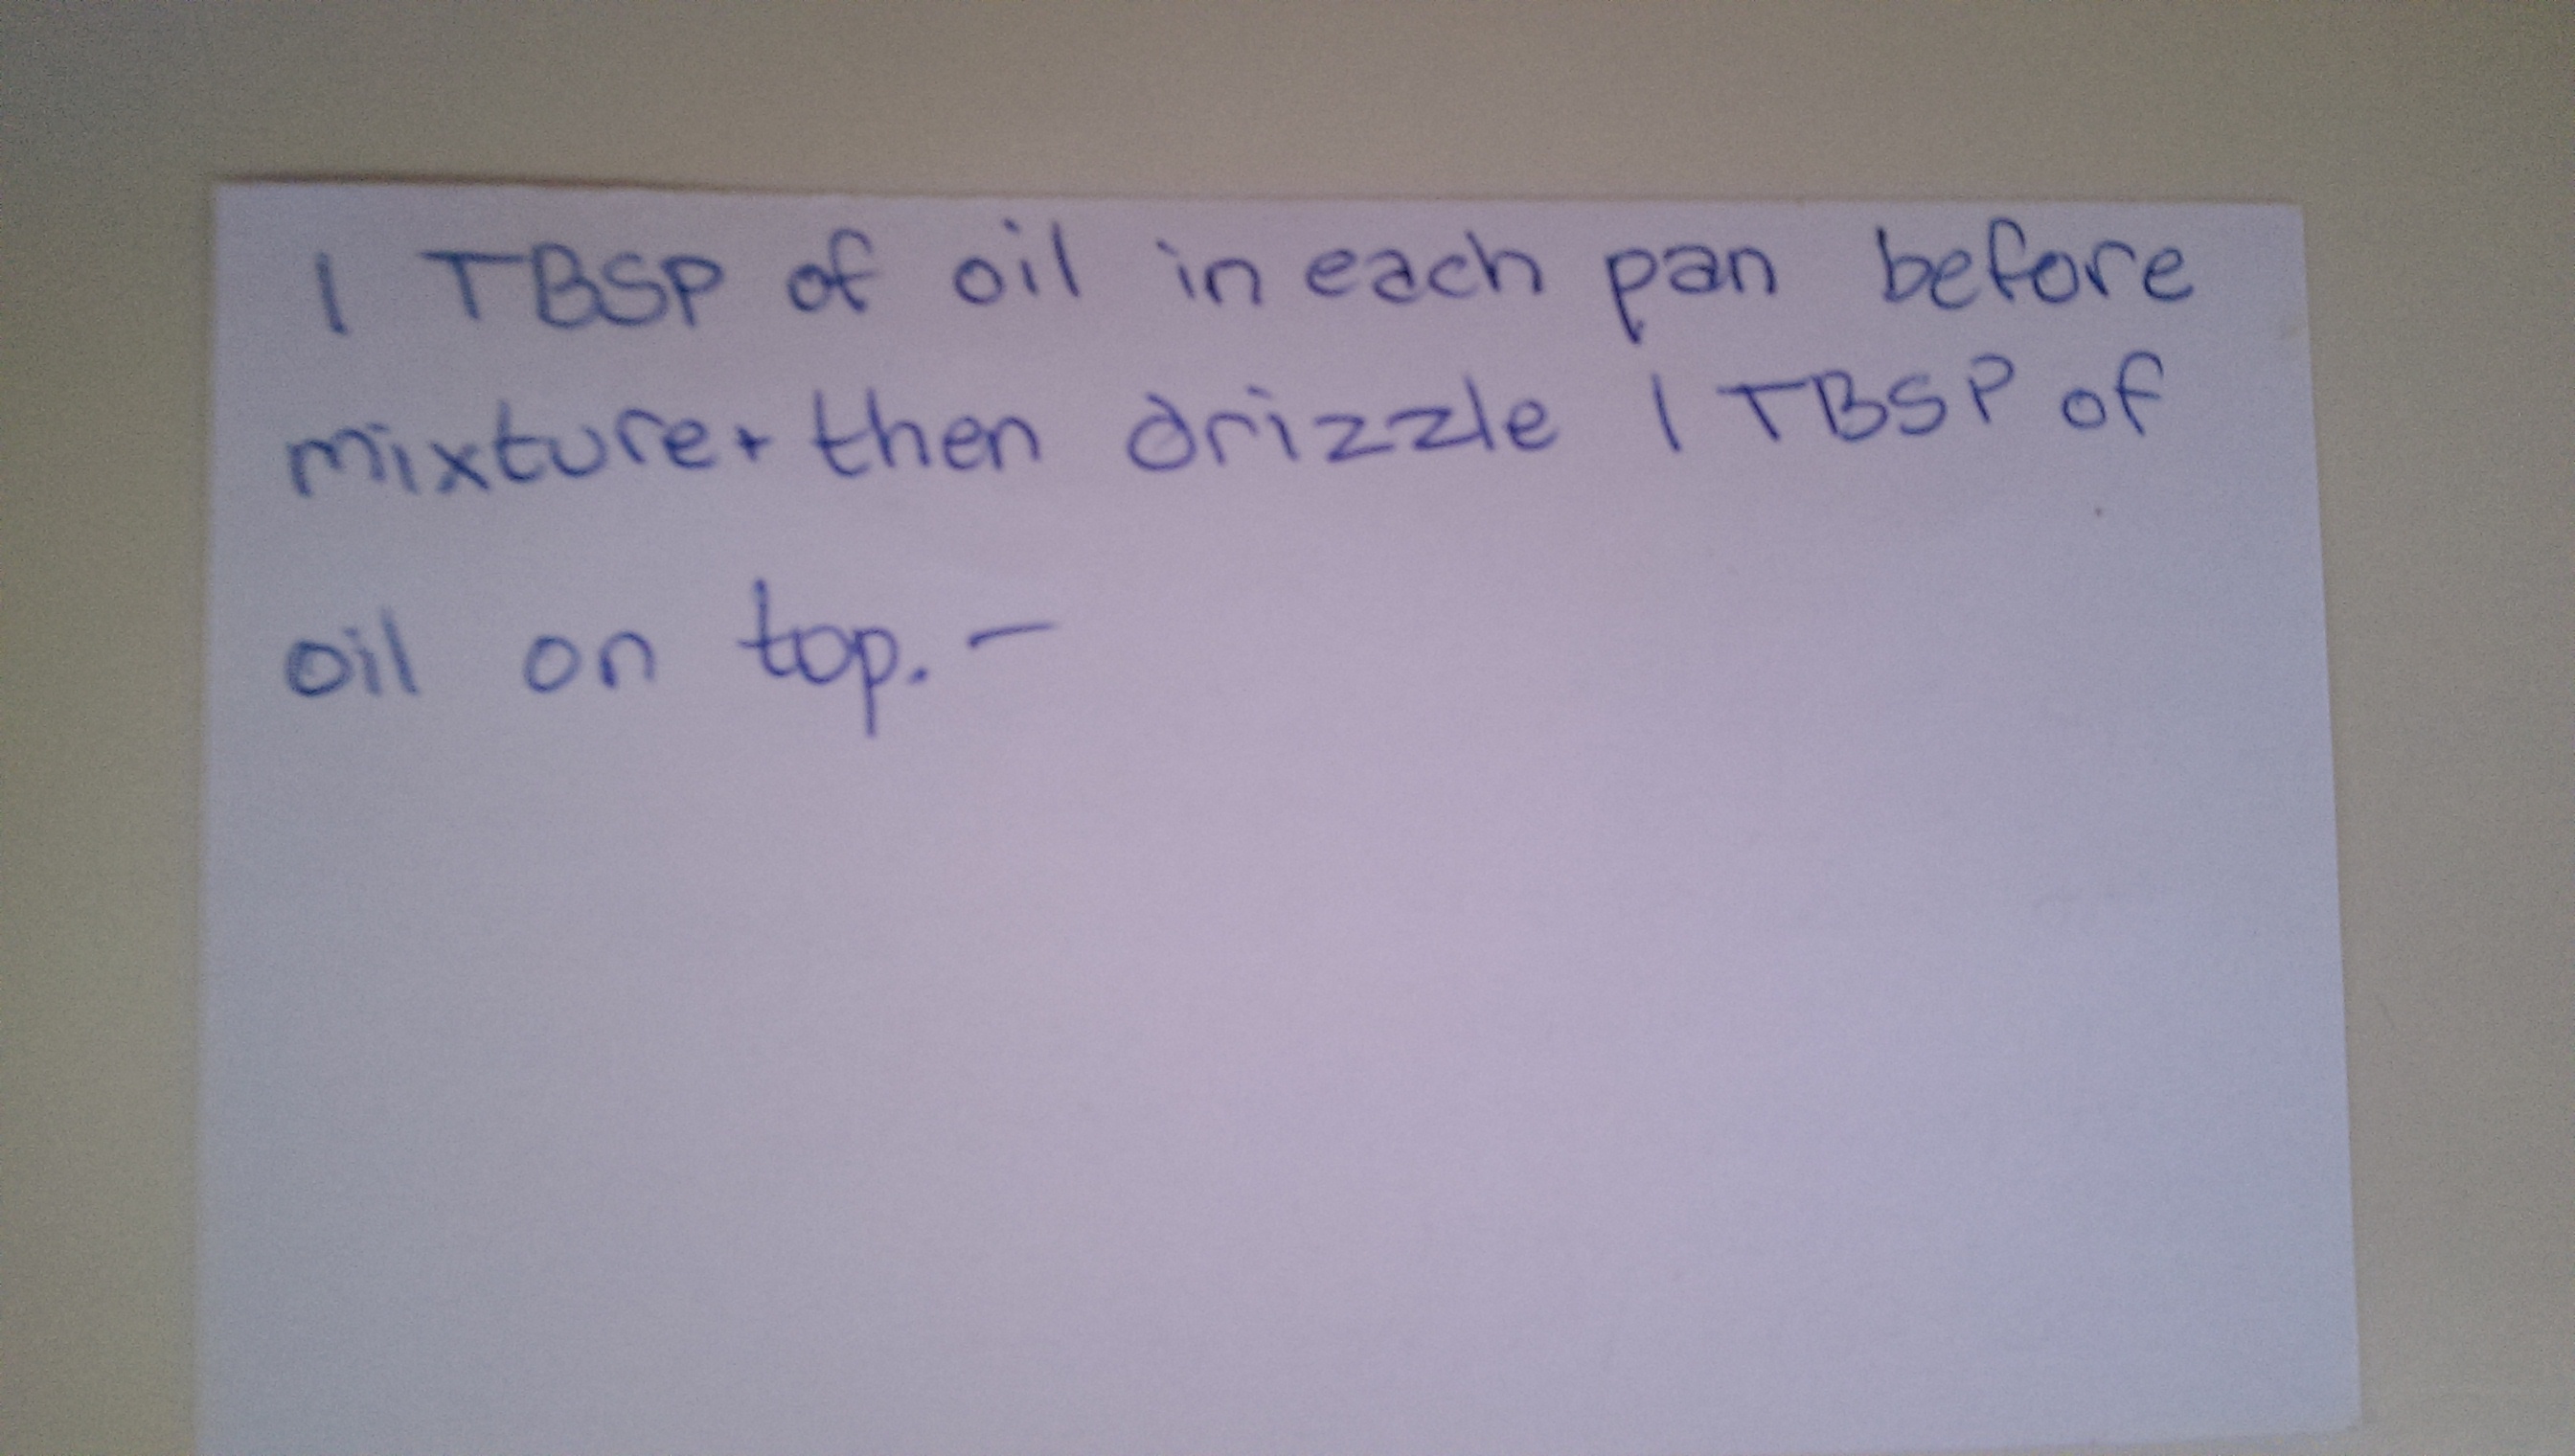 1 TBSP of oil in each pan before
mixture + then drizzle 1 TBSP of
oil on top. -